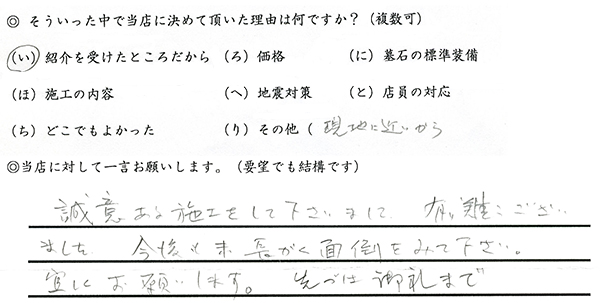 ◎ そういった中で当店に決めて頂いた理由は何ですか？（複数可）
（い）紹介を受けたところだから （ろ）価格 （に）墓石の標準装備
（ほ）施工の内容 （へ）地震対策 （と）店員の対応
（ち）どこでもよかった （り）その他（ 現地に近いから
◎当店に対して一言お願いします。（要望でも結構です）
誠意ある施工をして下さいまして 有難うござい
ました 今後も末長がく面倒をみて下さい。
宜しくお願いします。 先づは御礼まで